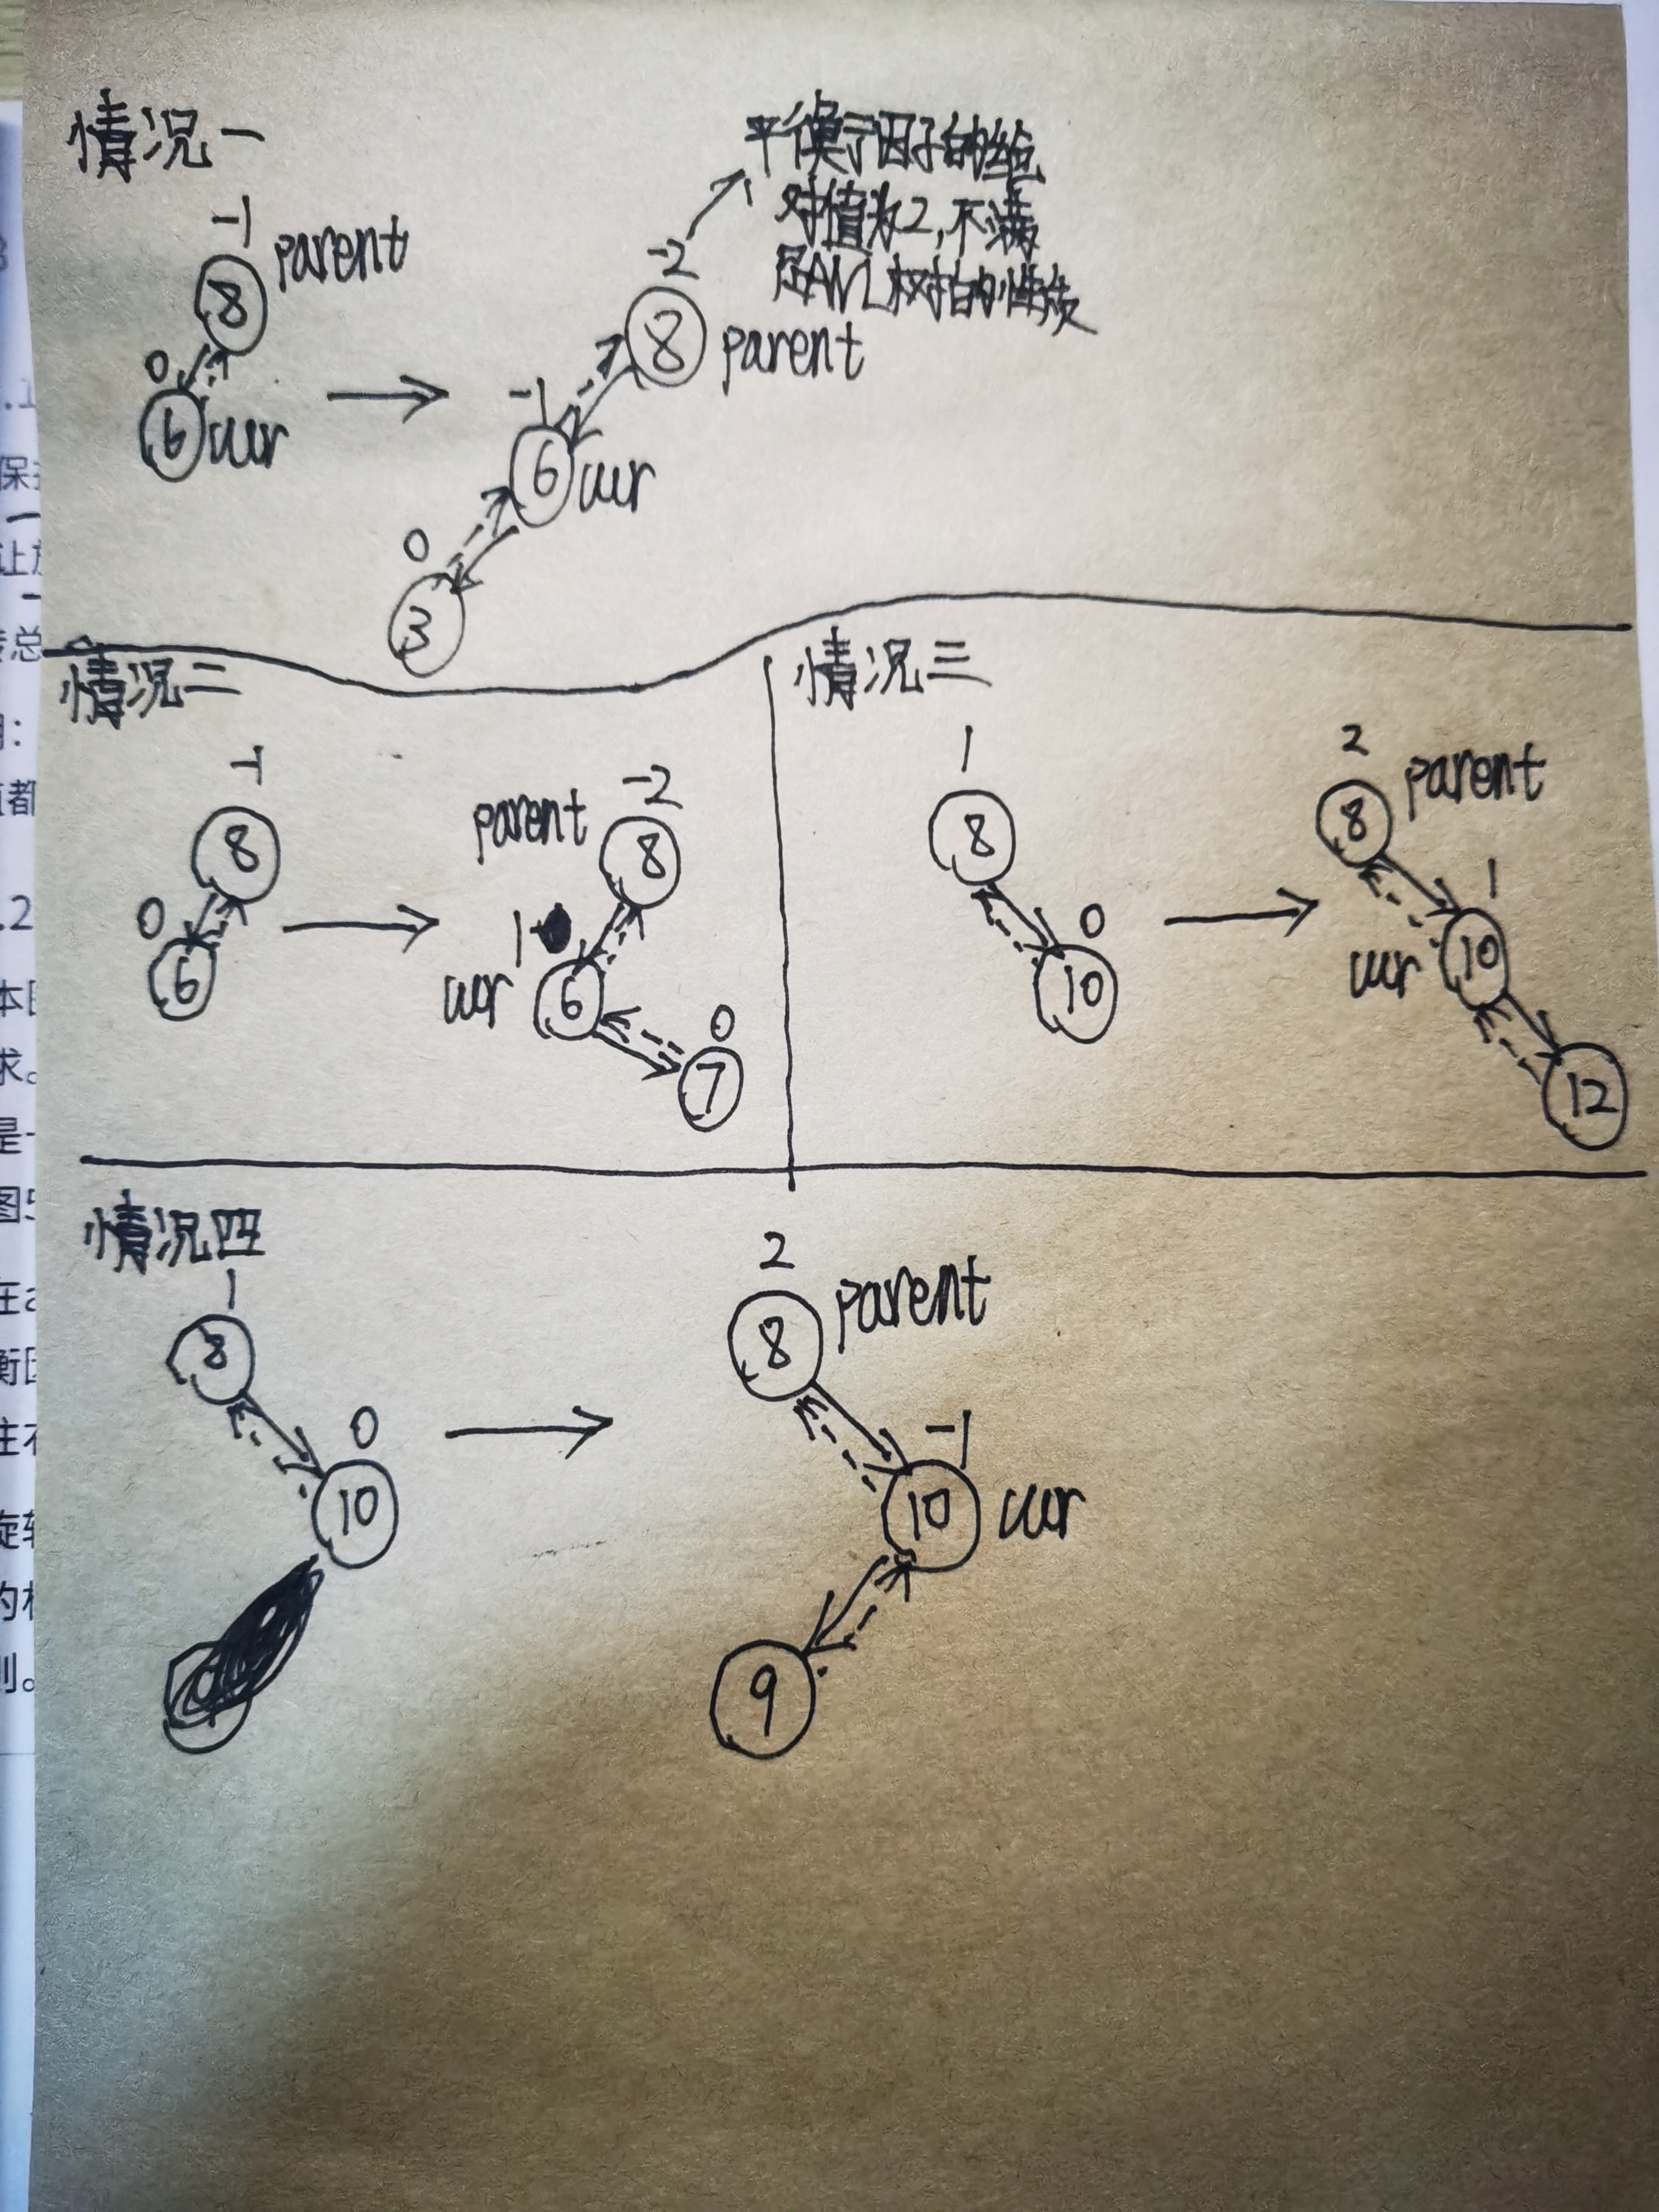 情况一
-1
parent
8
0
6
cur
平衡因子的绝
对值为2,不满
足AVL树的性质
-2
8
parent
-1
6
cur
0
3
情况二
-1
8
0
6
parent
-2
8
1
cur
6
0
7
情况三
1
8
0
10
2
8
parent
1
cur
10
12
情况四
1
8
0
10
2
8
parent
-1
10
cur
9